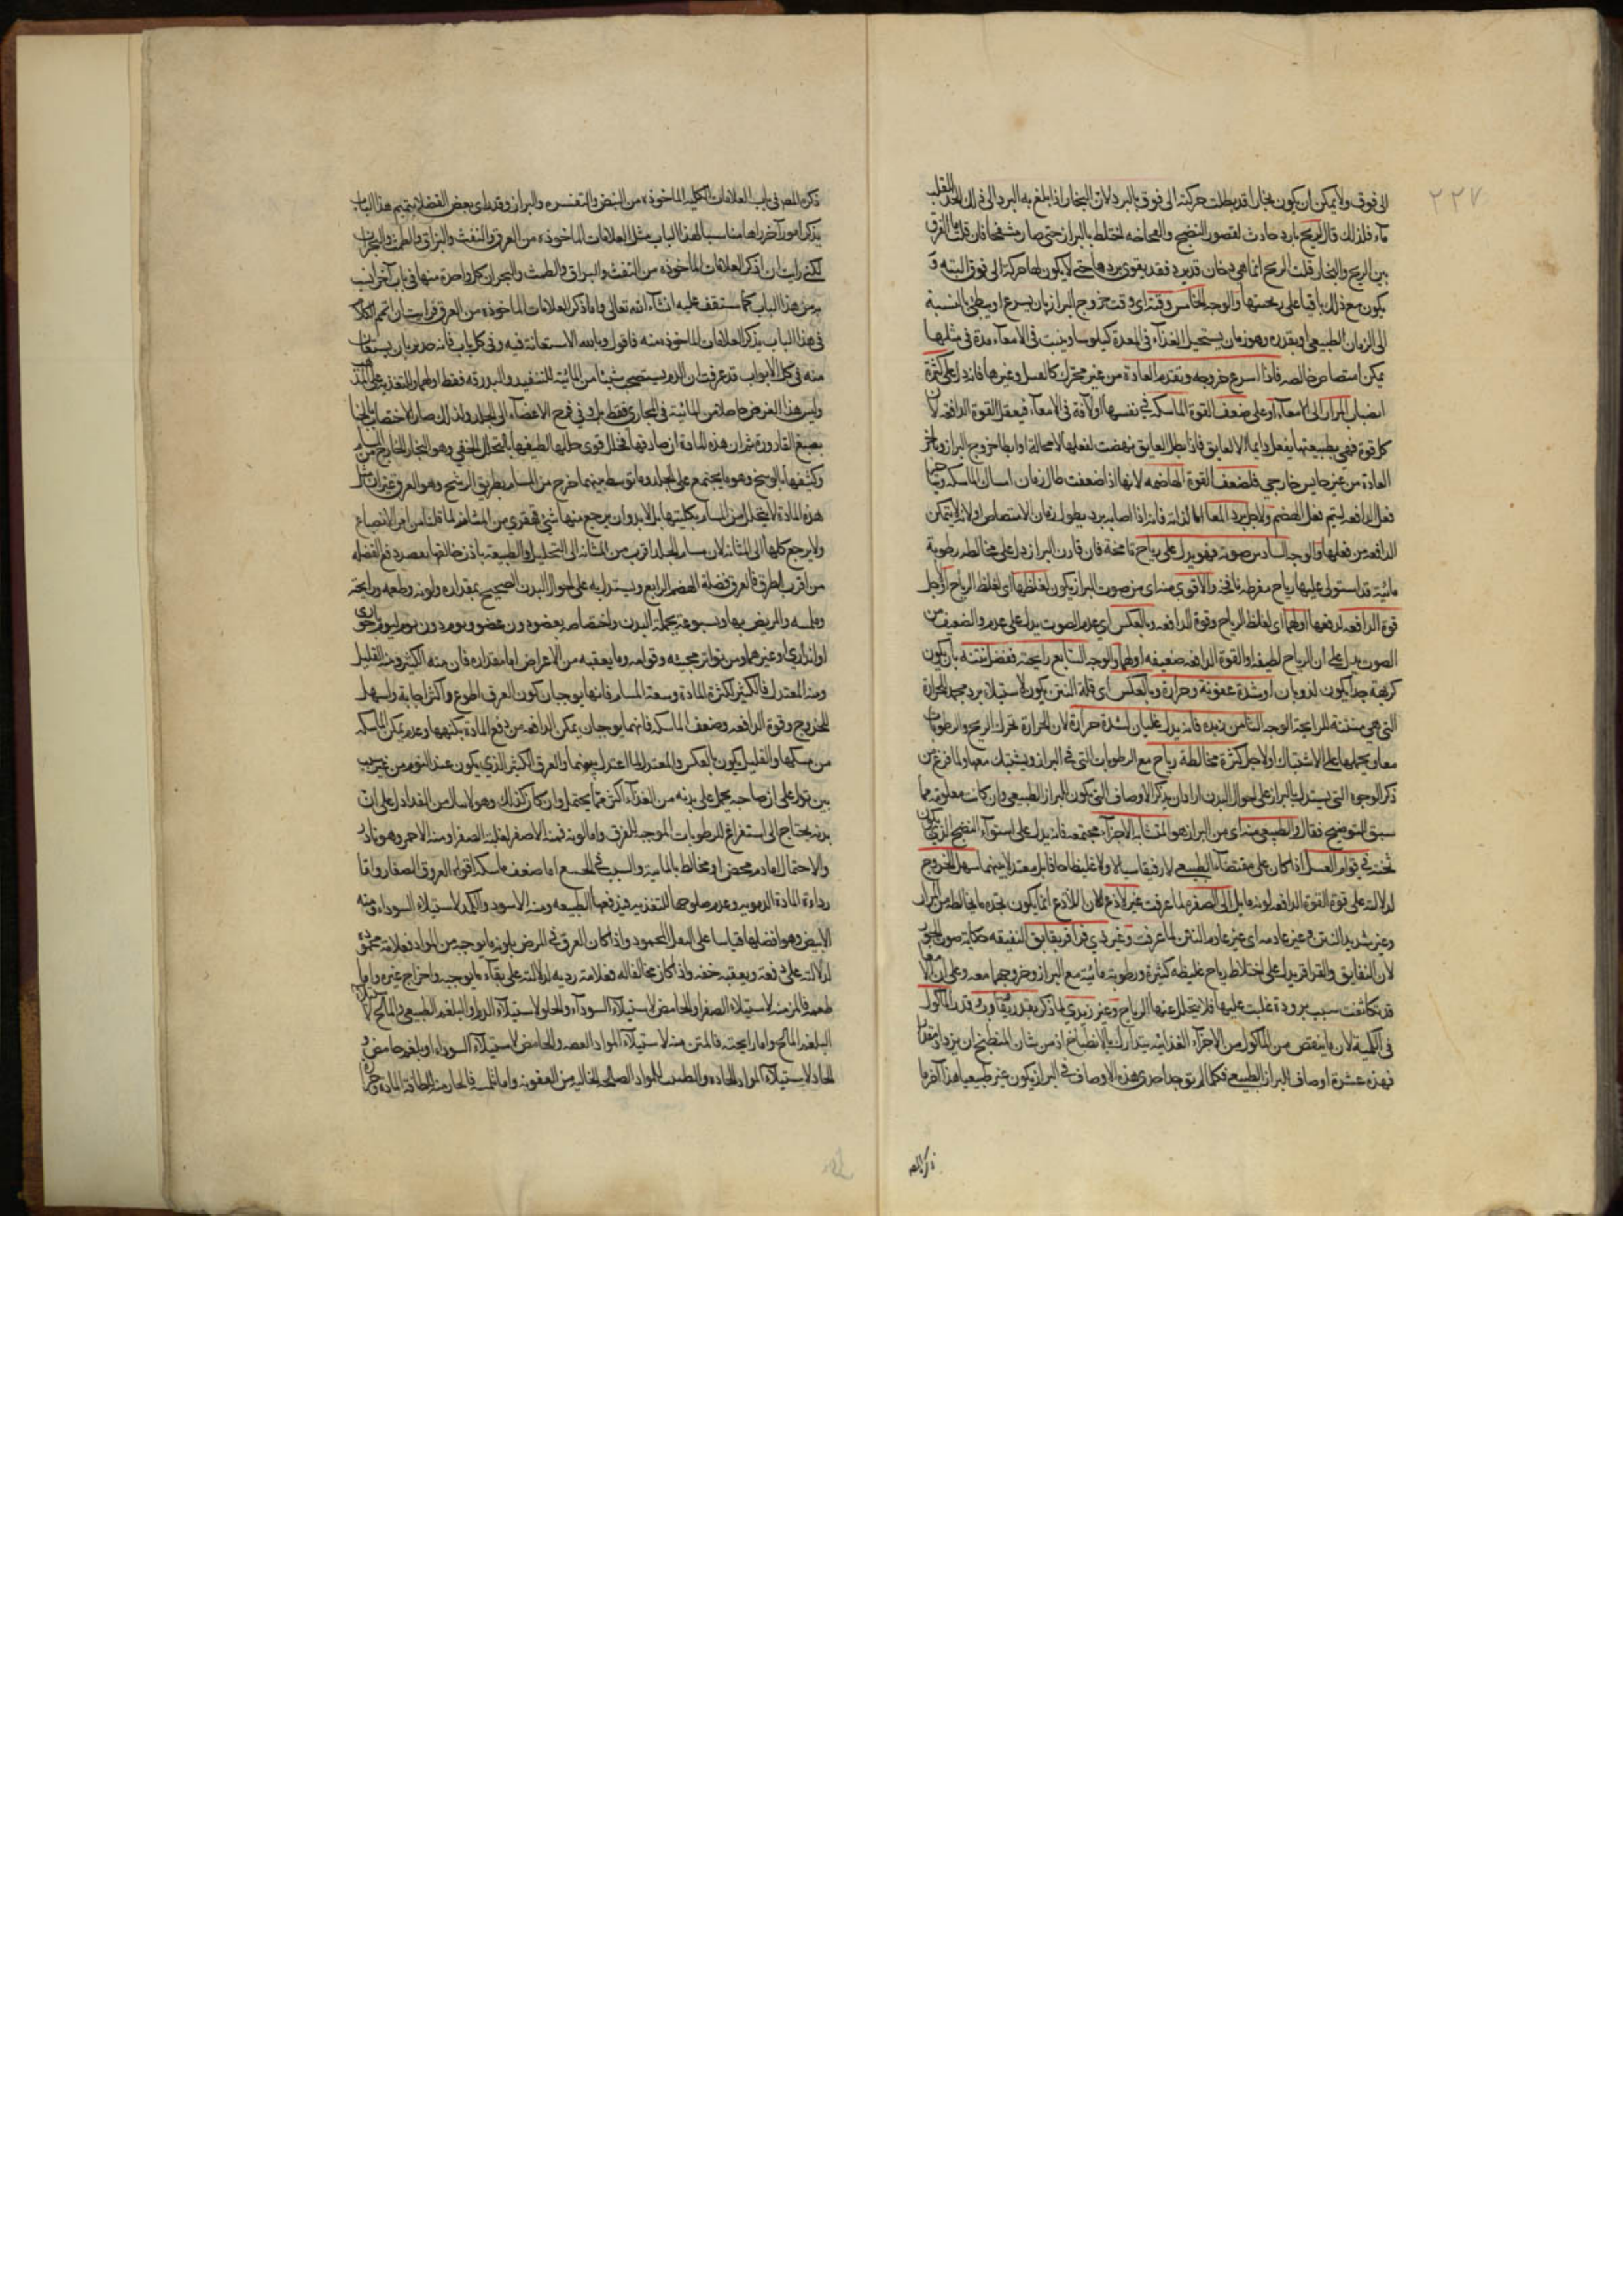 ٢٢٧
الى فوق ولا يمكن ان يكون بخارا قد بطلت حركته الى فوق بالبرد لان البخار اذا بلغ به البرد الى ذلك الحد انقلب
ماء فلذلك قال لريح بارد حادث لقصور النضج والفجاجة اختلط بالبراز حتى صار منتفخا فان قلت ما الفرق
بين الريح والبخار قلت الريح انما هي دخان قد برد فقد يقوى بردها حتى لا يكون لها حركة الى فوق البتة و
يكون مع ذلك باقيا على ريحيتها والوجه الخامس وقته اى وقت خروج البراز بان يسرع او يبطئ بالنسبة
الى الزمان الطبيعي او بقدره وهو زمان يستحيل الغذاء في المعدة كيلوسا ويثبت في الامعاء مدة في مثلها
يمكن امتصاص خالصه فاذا اسرع خروجه وتقدم العادة من غير محرك كالعسل وغيرها فانه يدل على كثرة
انصباب المرار الى الامعاء او على ضعف القوة الماسكة في نفسها او لآفة في الامعاء فيفعل القوة الدافعة لان
كل قوة فهي بطبيعتها يفعل دايما الا لعايق فاذا بطل العايق نهضت لفعلها لا محالة او ابطا خروج البراز وتاخر
العادة من غير حابس خارجي فلضعف القوة الهاضمة لانها اذا ضعفت طال زمان امساك الماسكة
فعل الدافعة ليتم فعل الهضم ولاجل برد المعا اما لذاته فانه اذا اصابه برد يطول زمان الامتصاص او لانه لا يتمكن
الدافعة من فعلها والوجه السادس صوته فهو يدل على رياح نافخة فان قارن البراز دل على مخالطة رطوبة
مائية قد استولى عليها رياح مفرطة نافخة والاقوى منه اى من صوت البراز يكون لغلظها اى لغلظ الرياح او لاجل
قوة الدافعة لدفعها او لهما اى لغلظ الرياح وقوة الدافعة وبالعكس اى عدم الصوت يدل على عدم والضعف من
الصوت يدل على ان الرياح لطيفة او القوة الدافعة ضعيفة او لهما والوجه السابع رايحته ففضل نتنه بان يكون
كريهة جدا يكون لذوبان او شدة عفونة وحرارة وبالعكس اى قلة النتن يكون لاستيلاء برد مجمد للحرارة
التي هي منتنة للرايحة الوجه الثامن زبده فانه يدل على غليان لشدة حرارة لان الحرارة تحرك الريح والرطوبات
معا ويحملها على الاشتباك او لاجل كثرة مخالطة رياح مع الرطوبات التي في البراز ويشتبك معها ولما فرغ من
ذكر الوجوه التي يستدل بالبراز على احوال البدن اراد ان يذكر الاوصاف التي يكون للبراز الطبيعي وان كانت معلومة مما
سبق للتوضيح فقال والطبيعي منه اى من البراز هو المتشابه الاجزاء مجتمعه فانه يدل على استواء النضج الذي يكون
ثخنته في قوام العسل اذا كان على مقتضاء الطبيعي لا رقيقا سيالا ولا غليظا جافا بل معتدلا بينهما سهل الخروج
لدلالته على قوة القوة الدافعة لونه مايل الى الصفرة لما عرفت غير لاذع لان اللاذع انما يكون بحدة ما يخالطه من المرار
وغير شديد النتن وغير عادمه اى غير عادم النتن لما عرفت وغير ذي قراقر وبقابق البقبقة حكاية صوت
لان البقابق والقراقر يدل على اختلاط رياح غليظة كثيرة ورطوبة مائية مع البراز وخروجهما معه وعلى ان
قد تكاثفت بسبب برودة غلبت عليها فلا يتحلل عنها الرياح وغير زبدي لما ذكر بقدر يقارب قدر الماكول
في الكمية لان ما ينقص من الماكول من الاجزاء الغذائية يتدارك بالانطباخ اذ من شان المنطبخ ان يزداد مقدارا
فهذه عشرة اوصاف البراز الطبيعي فكلما لم يوجد احدى هذه الاوصاف في البراز يكون غير طبيعيا هذا آخر ما
ذكره المص
ذكره المص في باب العلامات الكلية الماخوذة من النبض والتفسره والبراز وقد راى بعض الفضلاء تتميم هذا الباب
بذكر امور آخر راها مناسبا لهذا الباب مثل العلامات الماخوذة من العرق والنفث والبزاق والطمث والبحران
لكني رايت ان اذكر العلامات الماخوذة من النفث والبزاق والطمث والبحران كل واحدة منها في باب آخر انسب
به من هذا الباب كما ستقف عليه انشاء الله تعالى واما ذكر العلامات الماخوذة من العرق فرايت ان اتمم الكلام
في هذا الباب بذكر العلامات الماخوذة منه فاقول وبالله الاستعانة فيه وفي كل باب فانه جدير بان يستعان
منه في كل الابواب قد عرفت ان الدم يستصحب شيئا من المائية للتنفيذ والبدرقة فقط او لهما وللتغذية على
وليس هذا الغرض حاصلا من المائية في المجاري فقط بل وفي فرج الاعضاء الى الجلد ولذلك صار لاختصاب
بصبغ القارورة ثم ان هذه المادة ان صادفها تحلل قوى حللها لطيفها بالتحلل الخفي وهو البخار الخارج من المسام
وكثيفها بالوسخ وهو ما يجتمع على الجلد وما توسط بينهما خرج من المسام بطريق الرشح وهو العرق غير ان مثل
هذه المادة لا يتحلل من المسام بكليتها بل لا بد وان يرجع منها شئ قهقري من المشاش لما قلنا من امر الانصباغ
ولا يرجع كلها الى المثانة لان مسام الجلد اقرب من المثانة الى التحليل والطبيعة باذن خالقها بصدد دفع الفضلة
من اقرب الطرق فالعرق فضلة الهضم الرابع ويستدل به على احوال البدن الصحيح بمقداره ولونه وطعمه ورايحته
وملمسه والمريض بها وبسبوغه بجملة البدن واختصاصه بعضو دون عضو ويوم دون يوم ليوم بحراني
او انذاري او غيرهما ومن تواتر مجيئه وقوامه وما يعقبه من الاعراض اما مقداره فان منه الكثير ومنه القليل
ومنه المعتدل فالكثير لكثرة المادة وسعة المسام فانهما يوجبان كون العرق اطوع واكثر اجابة واسهل
للخروج وقوة الدافعة وضعف الماسكة فانهما يوجبان يمكن الدافعة من دفع المادة بكنهها وعدم تمكن الماسكة
من مسكها والقليل يكون بالعكس والمعتدل لما اعتدل بينهما والعرق الكثير الذي يكون عند النوم من غير سبب
بين تدل على ان صاحبه يحمل على بدنه من الغذاء اكثر مما يحتمل وان كان كذلك وهو لا ينال من الغذا دل على ان
بدنه يحتاج الى استفراغ للرطوبات الموجبة للعرق واما لونه فمنه الاصفر لغلبة الصفرا ومنه الاحمر وهو نادر
والاحتمال اما دم محض او مخالط بالمائية والسبب في الجميع اما ضعف ماسكة افواه العروق الصغار واما
رداءة المادة الدموية وعدم صلوحها للتغذية فيدفعها الطبيعة ومنه الاسود والكمد لاستيلاء السوداء ومنه
الابيض وهو افضلها قياسا على البول المحمود واذا كان العرق في المرض بلونه ما يوجبه من المواد فعلامة محمودة
لدلالته على دفعه ويعقبه خفة واذا كان مخالفا له فعلامة ردية لدلالته على بقاء ما يوجبه واخراج غيره واما
طعمه فالمر منه لاستيلاء الصفرا والحامض لاستيلاء السوداء والحلو لاستيلاء الدم او البلغم الطبيعي والمالح
البلغم المالح واما رايحته فالمنتن منه لاستيلاء المواد العفنة والحامض لاستيلاء السوداء او بلغم حامض و
الحاد لاستيلاء المواد الحادة والطيب للمواد الصالحة الخالية من العفونة واما ملمسه فالحار منه للطافة المادة